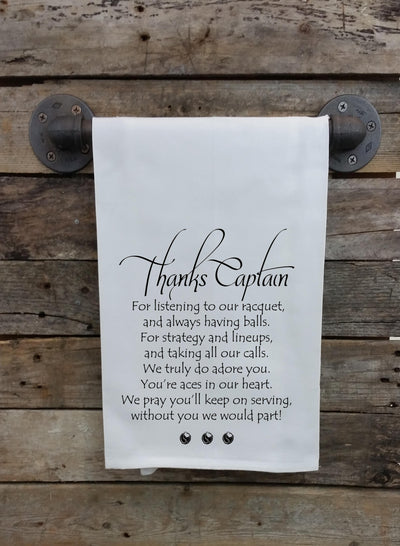 Thanks Captain
For listening to our racquet,
and always having balls.
For strategy and lineups,
and taking all our calls.
We truly do adore you.
You're aces in our heart.
We pray you'll keep on serving,
without you we would part!